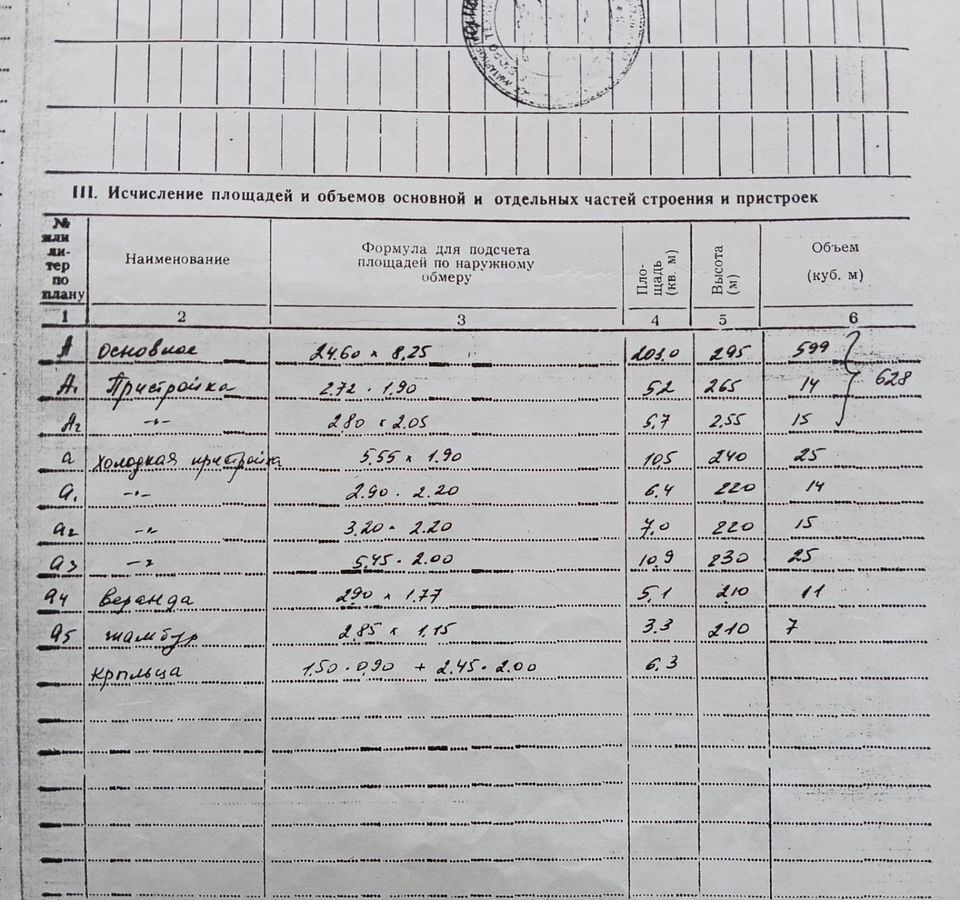 III. Исчисление площадей и объемов основной и отдельных частей строения и пристроек
№ или литер по плану | Наименование | Формула для подсчета площадей по наружному обмеру | Площадь (кв. м) | Высота (м) | Объем (куб. м)
1 2 3 4 5 6
А основное 24.60 x 8,25 203.0 295 599
А1 Пристройка 2.72 · 1.90 5.2 265 14 628
А2 -"- 2.80 x 2.05 5.7 2.55 15
а холодная пристройка 5.55 x 1.90 10.5 240 25
а1 -"- 2.90 · 2.20 6.4 220 14
а2 -"- 3.20 · 2.20 7.0 220 15
а3 -"- 5.45 · 2.00 10.9 230 25
а4 веранда 2.90 x 1.77 5.1 2.10 11
а5 тамбур 2.85 x 1.15 3.3 210 7
крыльца 1.50 · 0.90 + 2.45 · 2.00 6.3